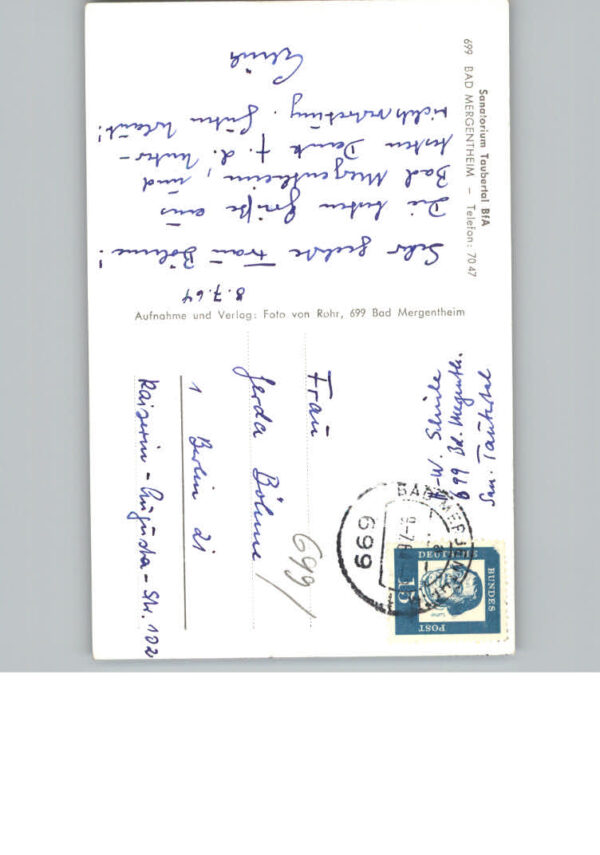 Sanatorium Taubertal BfA
699 BAD MERGENTHEIM — Telefon: 70 47
8.7.64
Sehr geehrte Frau Böhme!
Die besten Grüße aus
Bad Mergentheim, und
besten Dank f. d. Unter-
richtsvertretung. Guten Urlaub!
Aufnahme und Verlag: Foto von Rohr, 699 Bad Mergentheim
699 Bd. Mergenth.
San. Taubertal
Frau
Gerda Böhme
1 Berlin 21
Kaiserin-Augusta-Str. 102
699/
699
BAD MERGENTHEIM
DEUTSCHE
BUNDES
POST
15